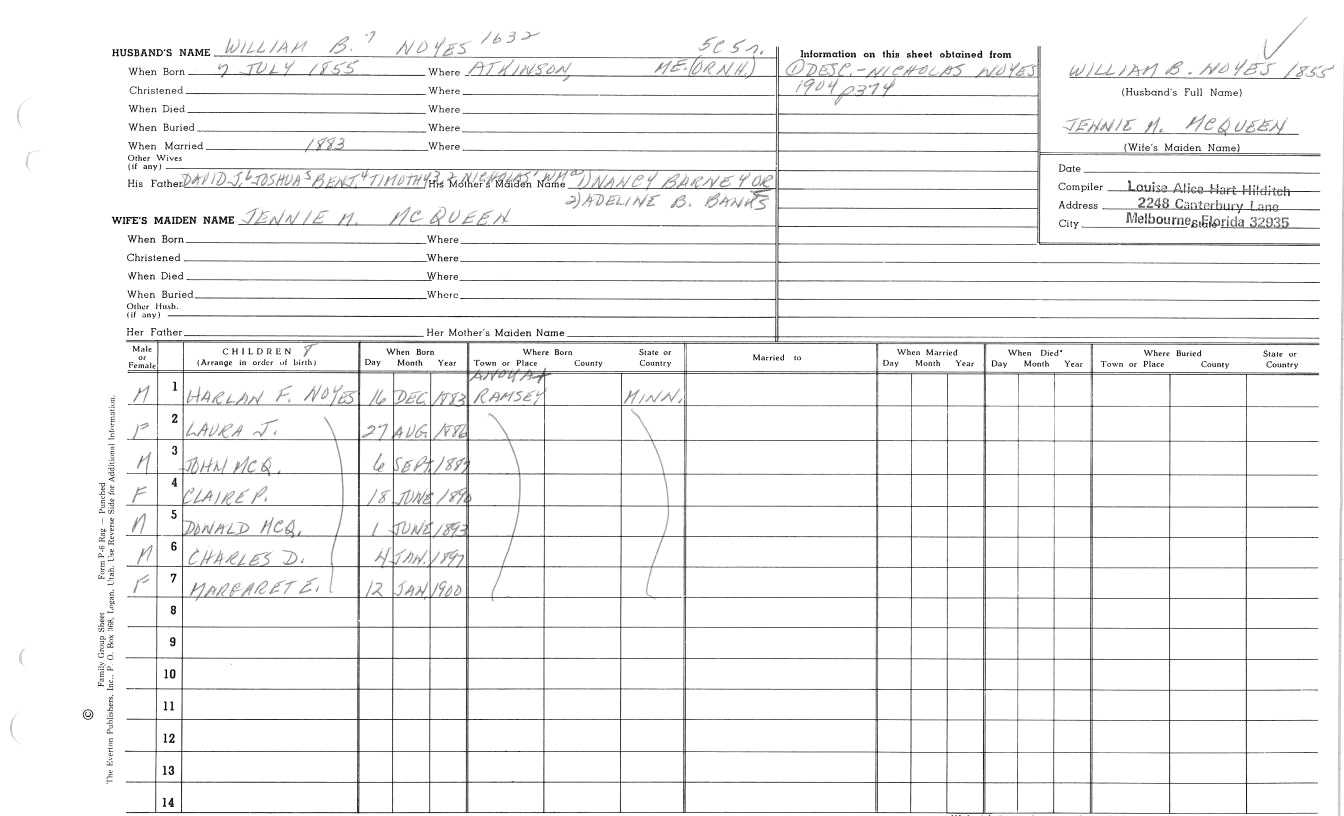 HUSBAND'S NAME WILLIAM B.7 NOYES 1632 5C5r.
When Born 7 JULY 1855 Where ATKINSON, ME.(OR N.H.)
Christened Where
When Died Where
When Buried Where
When Married 1883 Where
Other Wives
(if any)
His Father DAVID J,6 JOSHUA5 BENJ,4 TIMOTHY3,2 NICHOLAS1 WM a His Mother's Maiden Name 1)NANCY BARNEY OR
2)ADELINE B. BANKS
WIFE'S MAIDEN NAME JENNIE M. MCQUEEN
When Born Where
Christened Where
When Died Where
When Buried Where
Other Husb.
(if any)
Her Father Her Mother's Maiden Name
Information on this sheet obtained from
① DESC.-NICHOLAS NOYES
1904 p374
WILLIAM B. NOYES 1855
(Husband's Full Name)
JENNIE M. MCQUEEN
(Wife's Maiden Name)
Date
Compiler Louise Alice Hart Hilditch
Address 2248 Canterbury Lane
City Melbourne, Florida 32935 State
Male or Female CHILDREN (Arrange in order of birth) When Born Day Month Year Where Born Town or Place County State or Country Married to When Married Day Month Year When Died* Day Month Year Where Buried Town or Place County State or Country
ANOYAT
M 1 HARLAN F. NOYES 16 DEC. 1883 RAMSEY MINN.
F 2 LAURA J. 27 AUG 1886
M 3 JOHN MCQ. 6 SEPT. 1887
F 4 CLAIRE P. 18 JUNE 1890
M 5 DONALD MCQ. 1 JUNE 1893
M 6 CHARLES D. 4 JAN. 1897
F 7 MARGARET E. 12 JAN 1900
8
9
10
11
12
13
14
© Family Group Sheet Form P-6 Rag — Punched
The Everton Publishers, Inc., P. O. Box 368, Logan, Utah. Use Reverse Side for Additional Information.